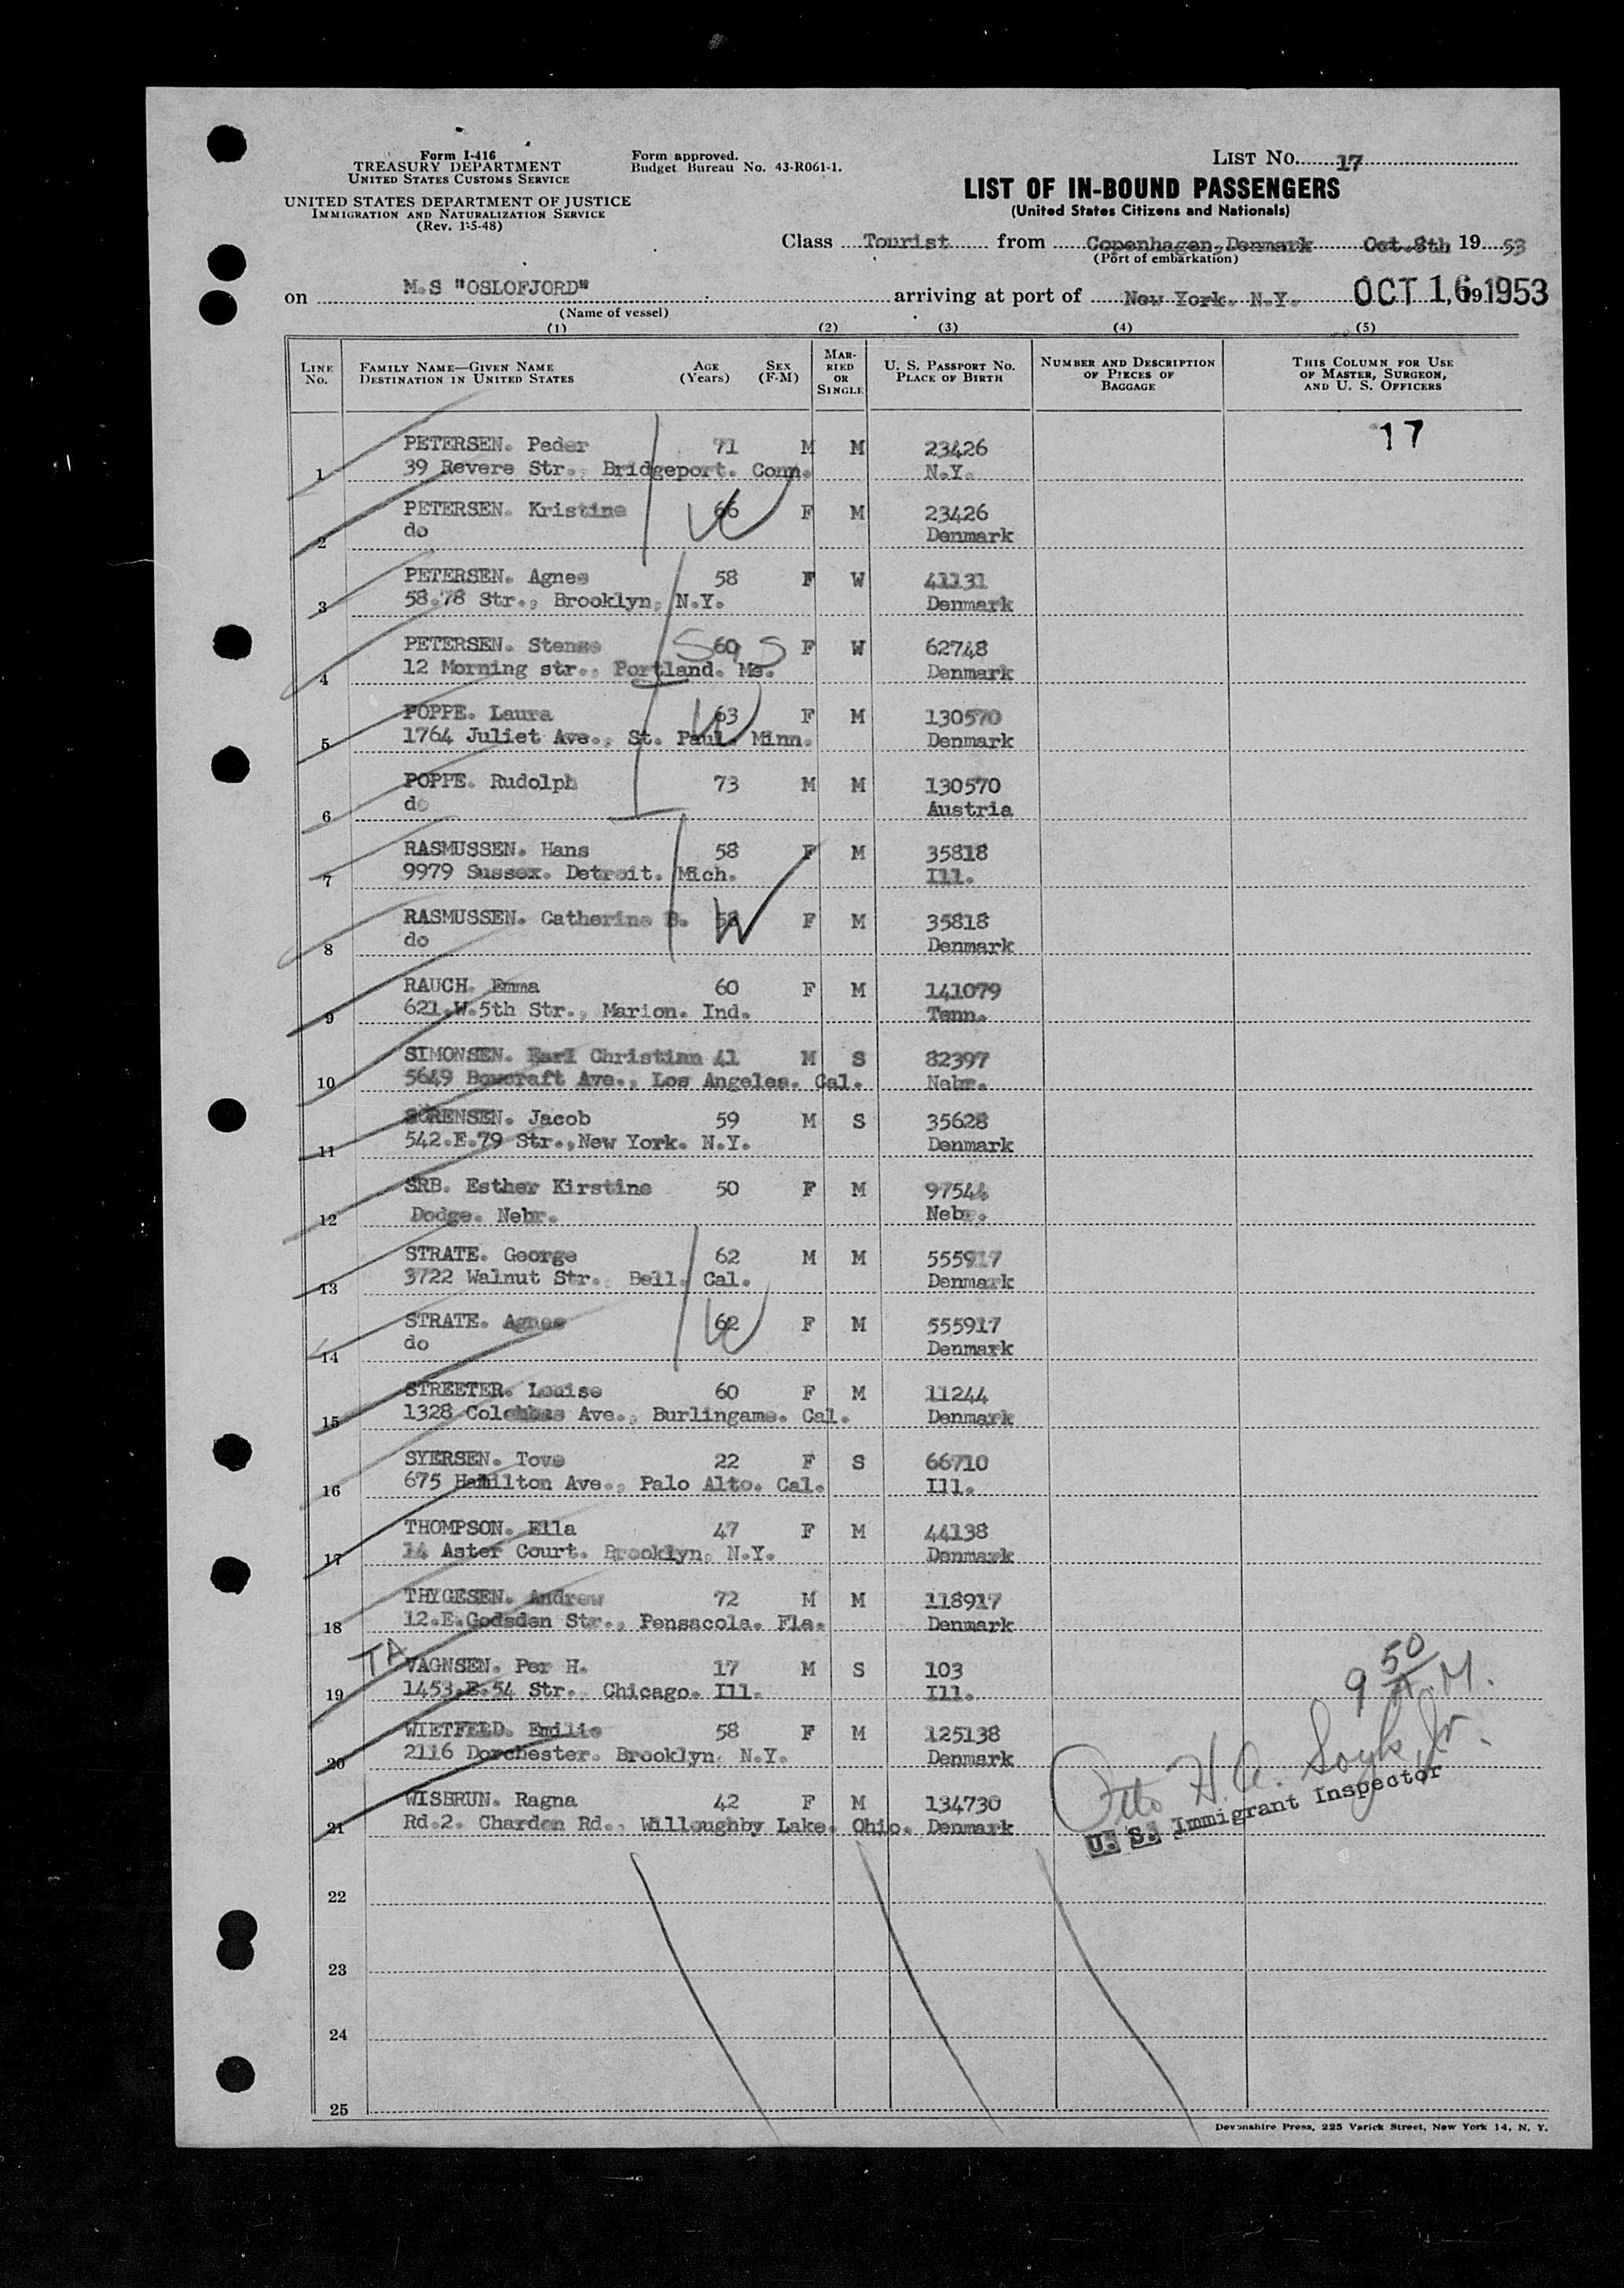 Form I-416
TREASURY DEPARTMENT
UNITED STATES CUSTOMS SERVICE
UNITED STATES DEPARTMENT OF JUSTICE
IMMIGRATION AND NATURALIZATION SERVICE
(Rev. 1-5-48)
Form approved.
Budget Bureau No. 43-R061-1.
LIST NO. 17
LIST OF IN-BOUND PASSENGERS
(United States Citizens and Nationals)
Class Tourist from Copenhagen, Denmark Oct. 8th 19 53
(Port of embarkation)
on M.S "OSLOFJORD" arriving at port of New York. N.Y. OCT 16, 19 1953
(Name of vessel)
(1) (2) (3) (4) (5)
LINE No. FAMILY NAME—GIVEN NAME DESTINATION IN UNITED STATES AGE (Years) SEX (F-M) MARRIED OR SINGLE U. S. PASSPORT NO. PLACE OF BIRTH NUMBER AND DESCRIPTION OF PIECES OF BAGGAGE THIS COLUMN FOR USE OF MASTER, SURGEON, AND U. S. OFFICERS
17
PETERSEN. Peder 71 M M 23426
1 39 Revere Str., Bridgeport. Conn. N.Y.
PETERSEN. Kristine 66 F M 23426
W
2 do Denmark
PETERSEN. Agnes 58 F W 41131
3 58.78 Str., Brooklyn, N.Y. Denmark
PETERSEN. 60 F W 62748
4 12 Morning str., Portland. Me. Denmark
POPPE. Laura 63 F M 130570
W
5 1764 Juliet Ave., St. Paul. Minn. Denmark
POPPE. Rudolph 73 M M 130570
6 do Austria
RASMUSSEN. Hans 58 F M 35818
7 9979 Sussex. Detroit. Mich. Ill.
RASMUSSEN. Catherine B. 58 F M 35818
W
8 do Denmark
RAUCH. Emma 60 F M 141079
9 621.W.5th Str., Marion. Ind. Tenn.
SIMONSEN. Earl Christian 41 M S 82397
10 5649 Bowcraft Ave., Los Angeles. Cal. Nebr.
SÖRENSEN. Jacob 59 M S 35628
11 542.E.79 Str.,New York. N.Y. Denmark
SRB. Esther Kirstine 50 F M 97544
12 Dodge. Nebr. Nebr.
STRATE. George 62 M M 555917
13 3722 Walnut Str., Bell. Cal. Denmark
STRATE. Agnes 62 F M 555917
W
14 do Denmark
STREETER. Louise 60 F M 11244
15 1328 Ave., Burlingame. Cal. Denmark
SYERSEN. Tove 22 F S 66710
16 675 Hamilton Ave., Palo Alto. Cal. Ill.
THOMPSON. Ella 47 F M 44138
17 14 Aster Court. Brooklyn, N.Y. Denmark
THYGESEN. Andrew 72 M M 118917
18 12.E.Godsden Str., Pensacola. Fla. Denmark
TA VAGNSEN. Per H. 17 M S 103
19 1453.E.54 Str., Chicago. Ill. Ill.
9 50 A.M.
WIETFELD. Emilie 58 F M 125138
20 2116 Dorchester. Brooklyn, N.Y. Denmark
WISBRUN. Ragna 42 F M 134730
21 Rd.2. Chardon Rd., Willoughby Lake. Ohio. Denmark
Otto H. A. Jr.
U. S. Immigrant Inspector
22
23
24
25
Devonshire Press, 225 Varick Street, New York 14, N. Y.